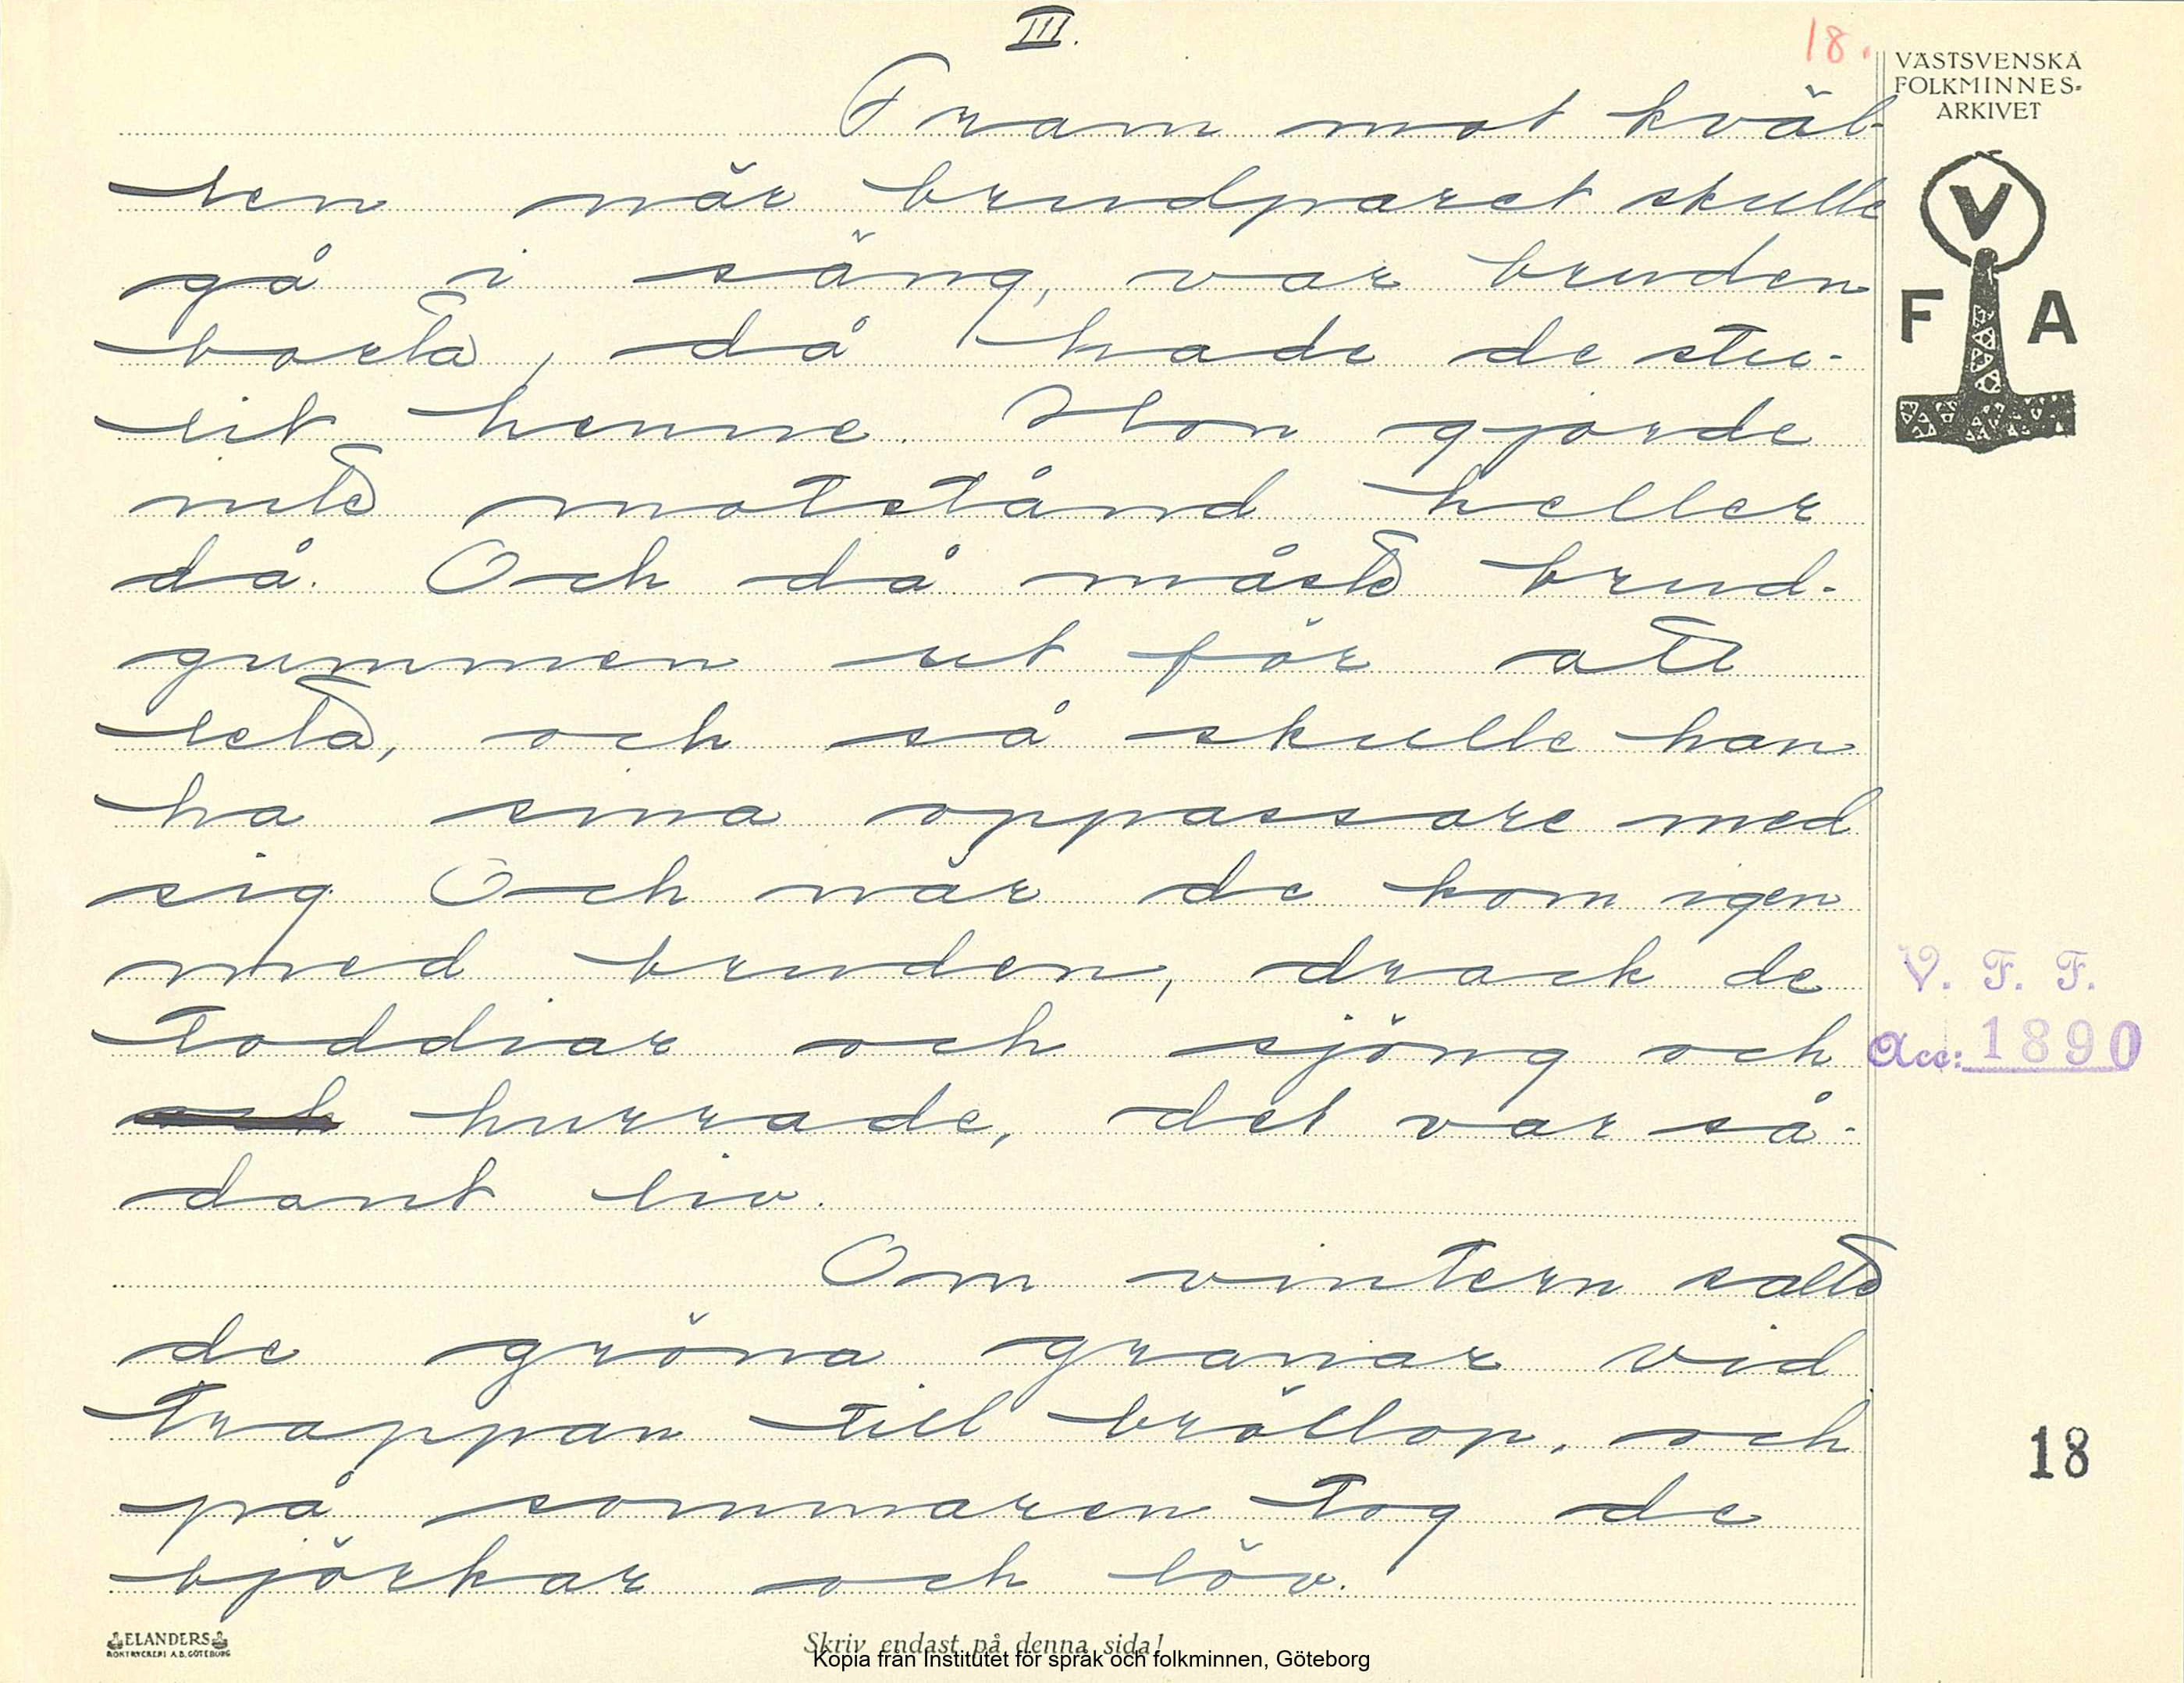 III.
18.
VÄSTSVENSKA
FOLKMINNES-
ARKIVET
V
F A
Fram mot kväl-
len när brudparet skulle
gå i säng, var bruden
borta, då hade de stu-
lit henne. Hon gjorde
inte motstånd heller
då. Och då måste brud-
gummen ut för att
leta, och så skulle han
ha sina oppassare med
sig Och när de kom igen
med bruden, drack de
toddiar och sjöng och
och hurrade, det var så-
dant liv.
V. F. F.
Acc: 1890
Om vintern satte
de gröna granar vid
trappan till bröllop, och
på sommaren tog de
björkar och löv.
18
ELANDERS
BOKTRYCKERI A.B. GÖTEBORG
Skriv endast på denna sida!
Kopia från Institutet för språk och folkminnen, Göteborg